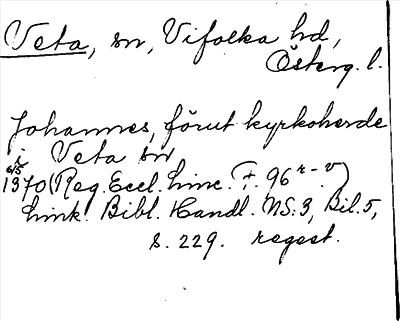 Veta, sn, Vifolka hd,
Österg. l.
Johannes, förut kyrkoherde
i Veta sn
6/5
1370 (Reg. Eccl. Linc. F. 96 r-v)
Link. Bibl. Handl. NS. 3, Bil. 5,
s. 229. regest.